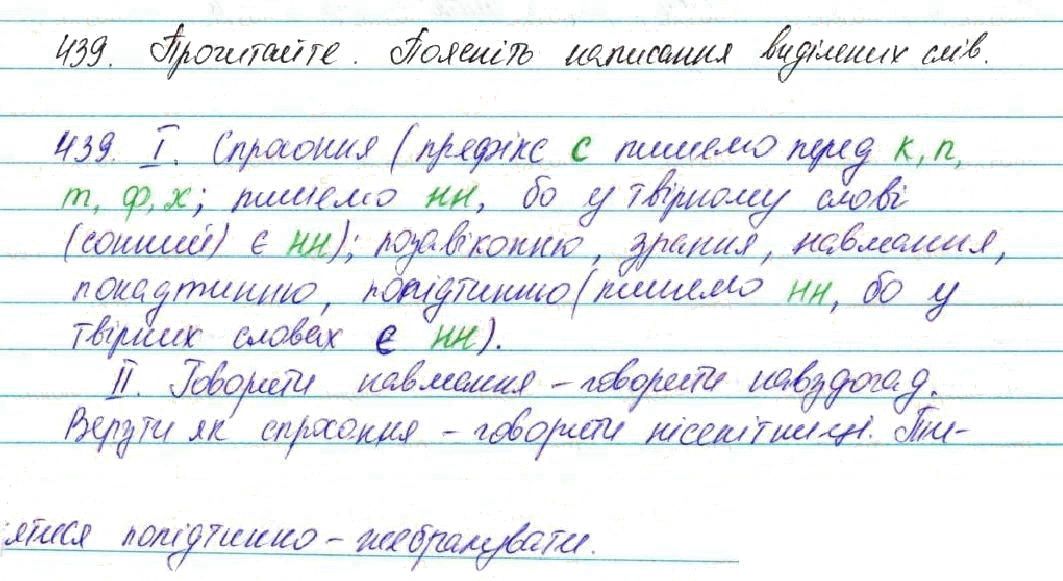 439. Прочитайте. Поясніть написання виділених слів.
439. I. Спросоння (префікс с пишемо перед к, п,
т, ф, х; пишемо нн, бо у твірному слові
(сонний) є нн); позавіконню, зрання, навмання,
понадтинню, попідтинню (пишемо нн, бо у
твірних словах є нн).
II. Говорити навмання – говорити навздогад.
Верзти як спросоння – говорити нісенітниці. Тин-
ятися попідтинню – жебракувати.